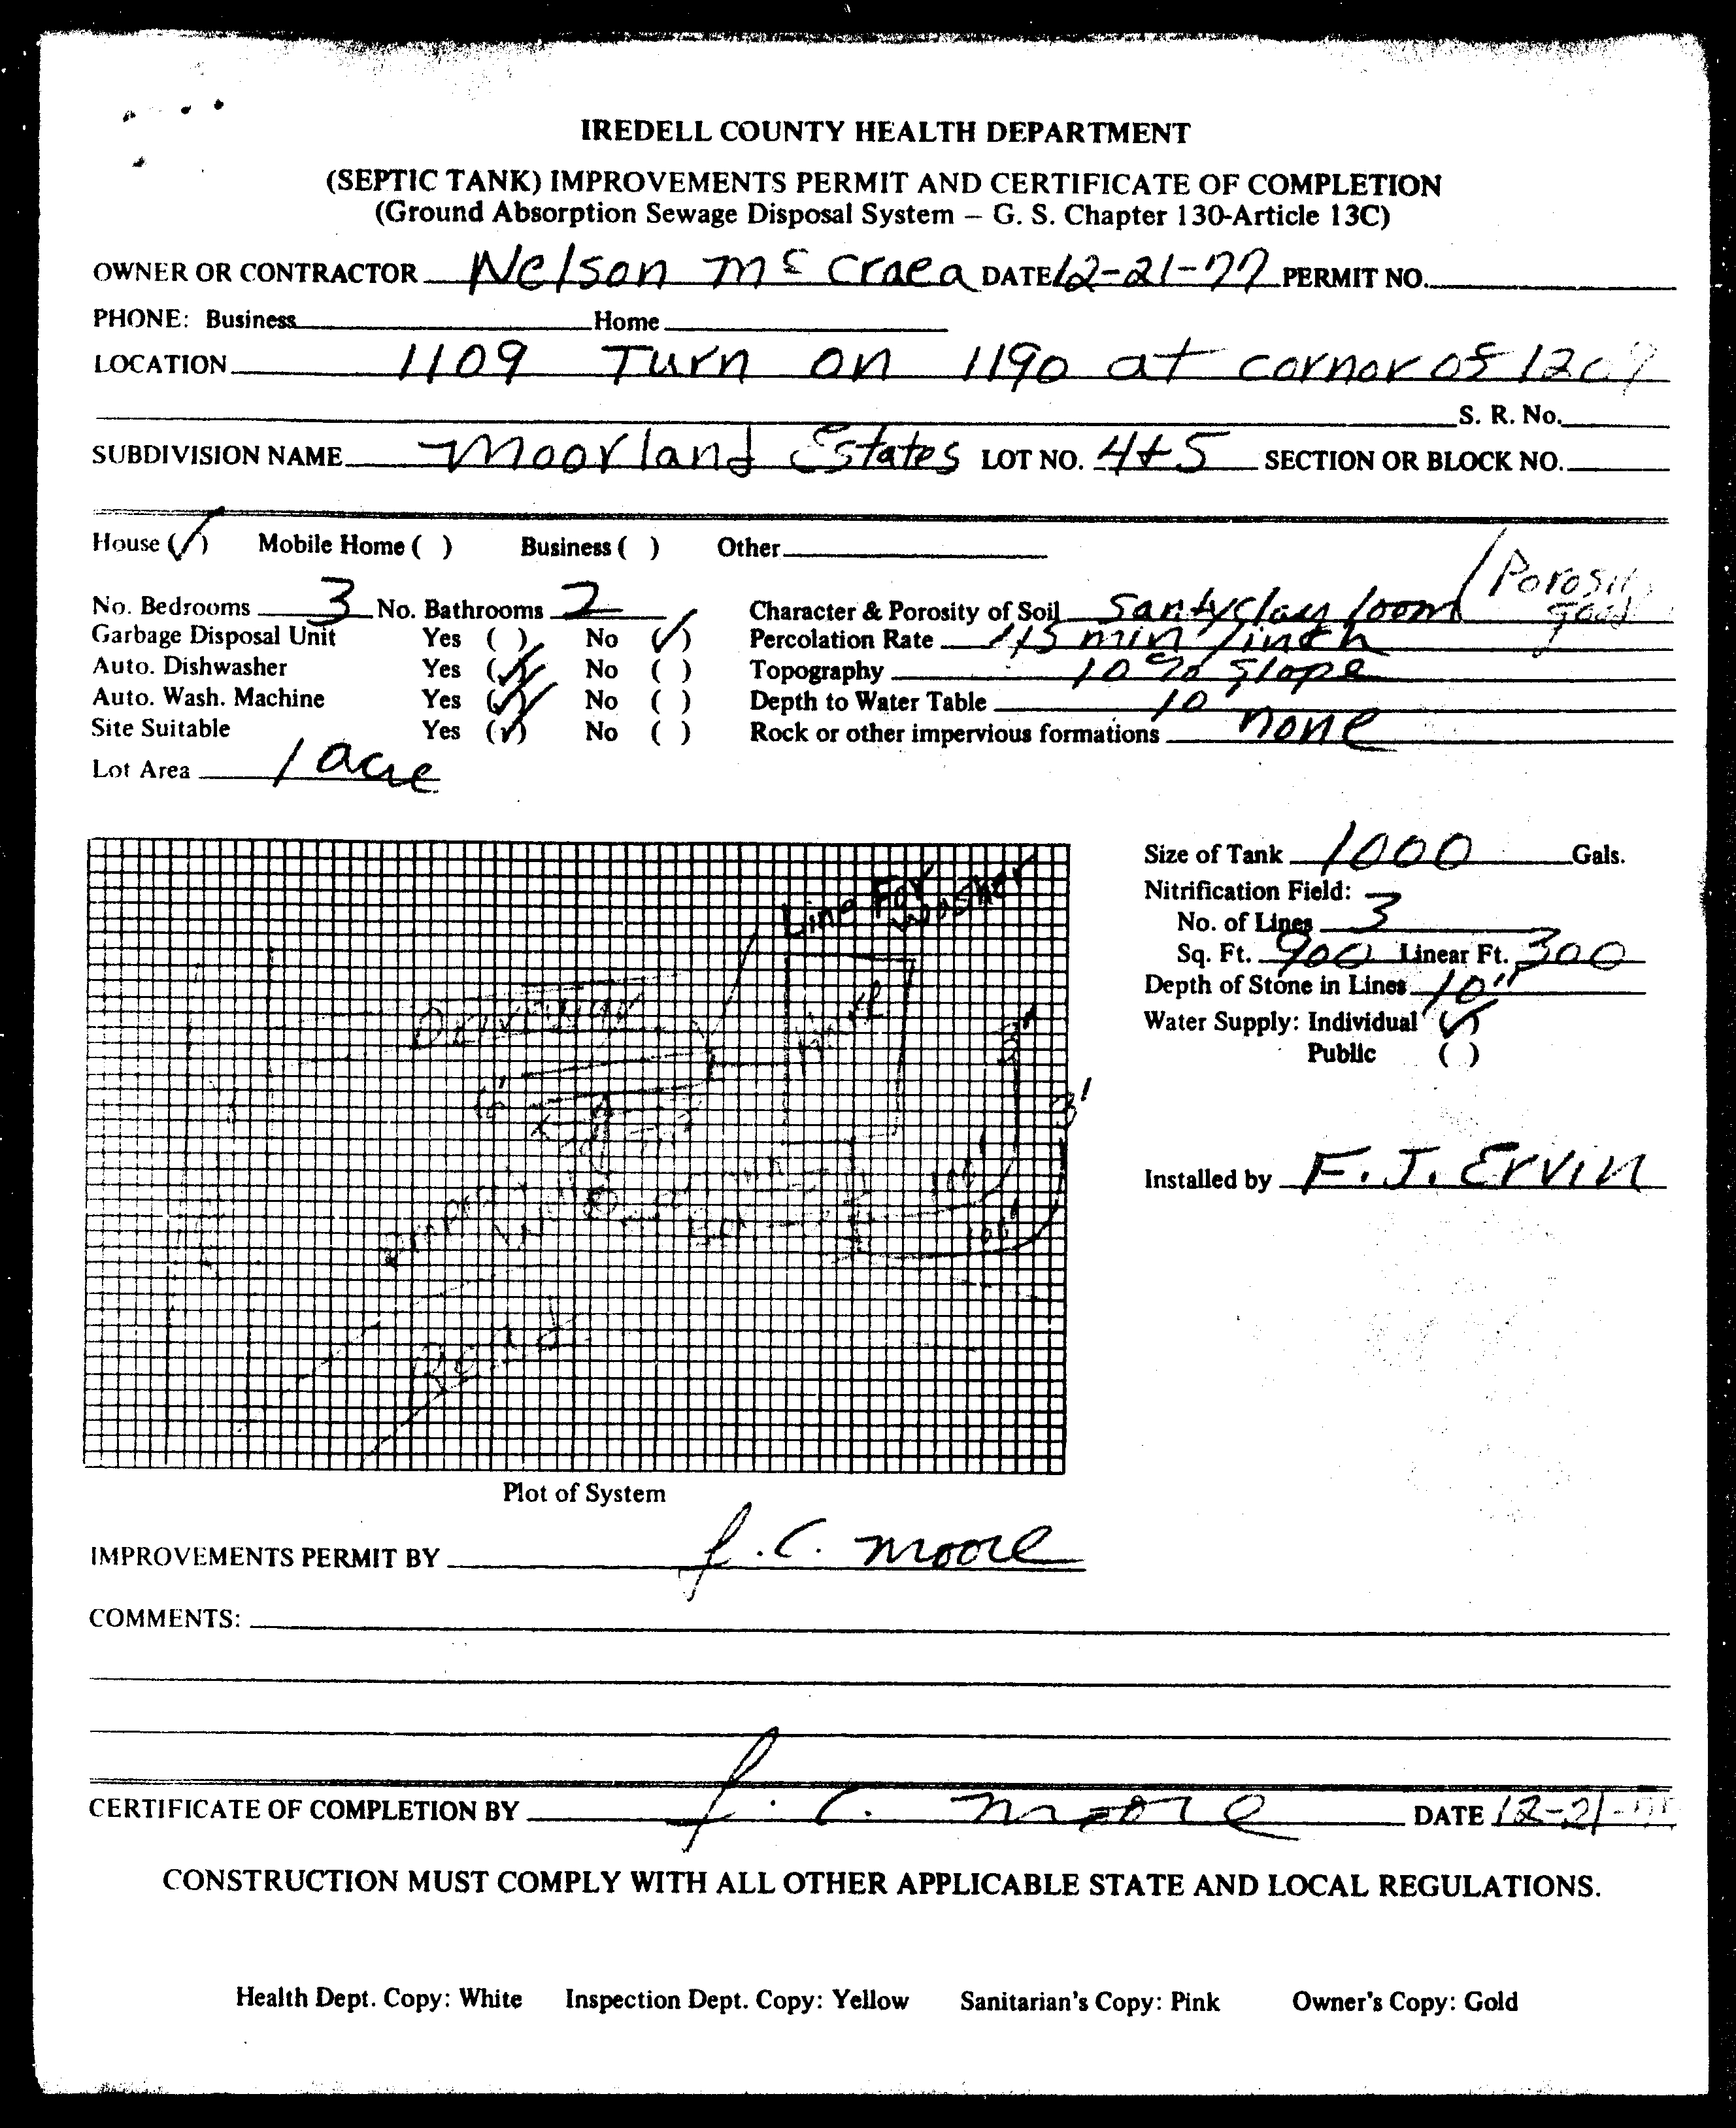 IREDELL COUNTY HEALTH DEPARTMENT
(SEPTIC TANK) IMPROVEMENTS PERMIT AND CERTIFICATE OF COMPLETION
(Ground Absorption Sewage Disposal System – G. S. Chapter 130-Article 13C)
OWNER OR CONTRACTOR Nelson Mc Craea DATE 12-21-77 PERMIT NO.
PHONE: Business Home
LOCATION 1109 Turn on 1190 at cornor of
S. R. No.
SUBDIVISION NAME Moorland Estates LOT NO. 4+5 SECTION OR BLOCK NO.
House (✓) Mobile Home ( ) Business ( ) Other
Porosity
good
No. Bedrooms 3 No. Bathrooms 2 Character & Porosity of Soil Santyclay loom
Garbage Disposal Unit Yes ( ) No (✓) Percolation Rate min/inch
Auto. Dishwasher Yes (✓) No ( ) Topography 10% Slope
Auto. Wash. Machine Yes (✓) No ( ) Depth to Water Table 10'
Site Suitable Yes (✓) No ( ) Rock or other impervious formations none
Lot Area 1 acre
Line For
Washer
Driveway
3'
100'
100'
Road
Plot of System
Size of Tank 1000 Gals.
Nitrification Field:
No. of Lines 3
Sq. Ft. 900 Linear Ft. 300
Depth of Stone in Lines 10"
Water Supply: Individual (✓)
Public ( )
Installed by F. J. Ervin
IMPROVEMENTS PERMIT BY J. C. Moore
COMMENTS:
CERTIFICATE OF COMPLETION BY J. C. Moore DATE 12-21-77
CONSTRUCTION MUST COMPLY WITH ALL OTHER APPLICABLE STATE AND LOCAL REGULATIONS.
Health Dept. Copy: White Inspection Dept. Copy: Yellow Sanitarian's Copy: Pink Owner's Copy: Gold